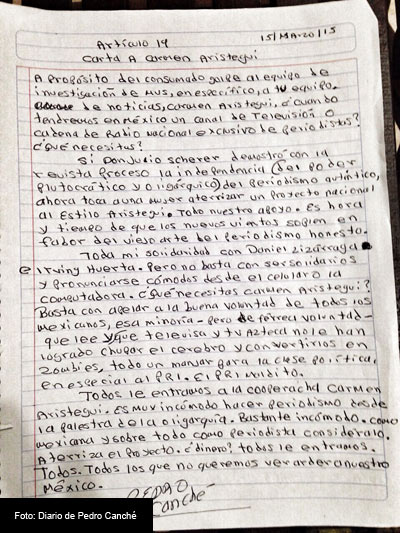 15/MAR20/15
Artículo 19
Carta A Carmen Aristegui
A Propósito del consumado golpe al equipo de
investigación de MVS, en específico, a tu equipo
de noticias, Carmen Aristegui, ¿cuando
tendremos en México un canal de Televisión o
cadena de Radio Nacional exclusivo de Periodistas?
¿Qué necesitas?
Si Don Julio Scherer demostró con la
revista Proceso la independencia (del poder
plutocrático y oligárquico) del Periodismo auténtico,
ahora toca a una mujer aterrizar un Proyecto nacional
al Estilo Aristegui. Todo nuestro apoyo. Es hora
y tiempo de que los nuevos vientos soplen en
favor del viejo arte del Periodismo honesto.
Toda mi solidaridad con Daniel Lizárraga
e Irving Huerta. Pero no basta con ser solidarios
y pronunciarse cómodos desde el celular o la
computadora. ¿Qué necesitas Carmen Aristegui?
Basta con apelar a la buena voluntad de todos los
mexicanos, esa minoría - pero de férrea voluntad -
que lee y que televisa y tv Azteca no le han
logrado chupar el cerebro y convertirlos en
zombies, todo un manjar para la clase política,
en especial al PRI. El PRI maldito.
Todos le entramos a la cooperacha Carmen
Aristegui. Es muy incómodo hacer periodismo desde
la palestra de la oligarquía. Bastante incómodo. Como
mexicana y sobre todo como periodista consideralo.
Aterriza el Proyecto. ¿dinero? todos le entramos.
Todos. Todos los que no queremos ver arder a nuestro
México.
PEDRO
Canché
Foto: Diario de Pedro Canché